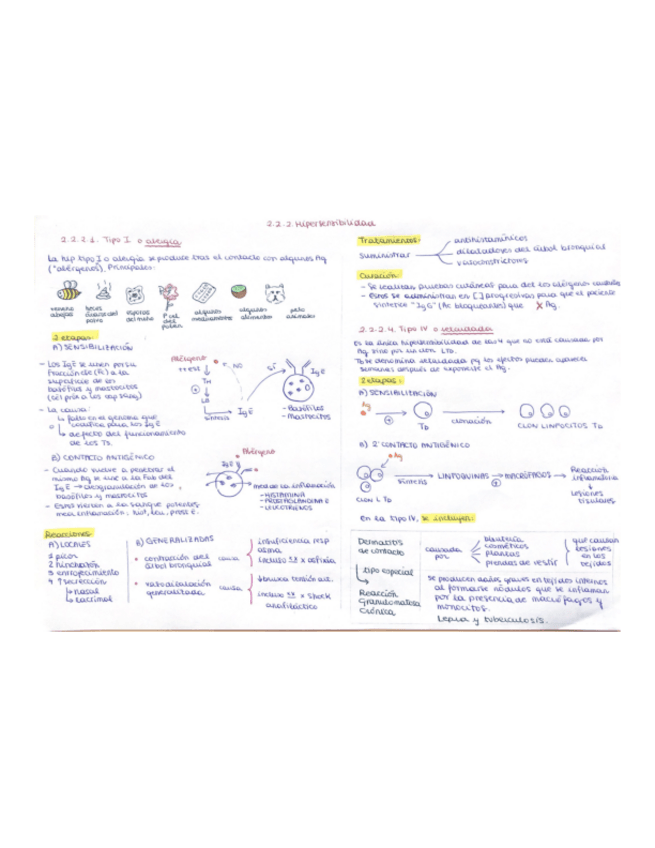 2.2.2. Hipersensibilidad
2.2.2.1. Tipo I o alergia
La hip tipo I o alergia se produce tras el contacto con algunos Ag
("alérgenos). Principales:
veneno abejas
heces
esporas
polen
algunos medicamentos
algunos alimentos
pelo animales
2 etapas:
A) SENSIBILIZACIÓN
- Los IgE se unen por su
fracción de (Fc) a la
superficie de los
basófilos y mastocitos
- La causa:
↳ fallo en el genoma que
codifica para los IgE
↳ defecto del funcionamiento
de los Ts.
Alérgeno
NO
SÍ
TH
LB
síntesis
IgE
IgE
- Basófilos
- Mastocitos
B) CONTACTO ANTIGÉNICO
- Cuando vuelve a penetrar el
mismo Ag se une a la Fab del
IgE → desgranulación de los
basófilos y mastocitos
- Estos vierten a la sangre potentes
Alérgeno
IgE
med de la inflamación
- HISTAMINA
- PROSTAGLANDINA E
- LEUCOTRIENOS
Reacciones:
A) LOCALES
1 picor
2 hinchazón
3 enrojecimiento
4 ↑ secreción
↳ nasal
↳ lacrimal
B) GENERALIZADAS
• contracción del
árbol bronquial
causa
insuficiencia resp
asma
incluso † x asfixia
• vasodilatación
generalizada
causa
↓ brusca tensión art.
incluso † x shock
anafiláctico
Tratamientos:
suministrar
antihistamínicos
dilatadores del árbol bronquial
vasoconstrictores
Curación:
- Se realizan pruebas cutáneas para det los alérgenos
- Estos se administran en [ ] progresivas para que el paciente
sintetice "IgG" (Ac bloqueantes) que X Ag.
2.2.2.4. Tipo IV o retardada
Es la única hipersensibilidad de las 4 que no está causada por
Ac sino por un clon LTD.
Tb se denomina retardada pq los efectos pueden aparecer
semanas después de exponerse el Ag.
2 etapas:
A) SENSIBILIZACIÓN
Ag
TD
clonación
CLON LINFOCITOS TD
B) 2º CONTACTO ANTIGÉNICO
Ag
CLON L TD
síntesis
LINFOQUINAS → MACRÓFAGOS → Reacción
inflamatoria
↓
lesiones
tisulares
En la tipo IV, se incluyen:
Dermatitis
de contacto
causada
por
bisutería
cosméticos
plantas
prendas de vestir
que causan
lesiones
en los
tejidos
↳ tipo especial
Reacción
Granulomatosa
Crónica
se producen daños graves en tejidos internos
al formarse nódulos que se inflaman
por la presencia de macrófagos y
monocitos.
Lepra y tuberculosis.